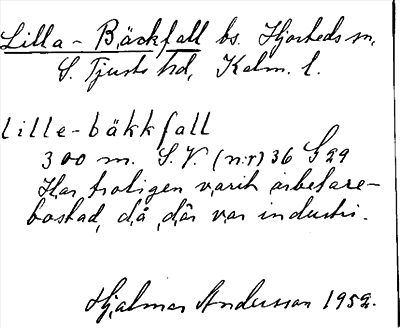 Lilla-Bäckfall bs. Hjorteds sn,
S. Tjusts hd, Kalm. l.
lille-bäkkfall
300 m. S.V. (n:r) 36 G 29
Har troligen varit arbetare-
bostad, då där var industri.
Hjalmar Andersson 1952.